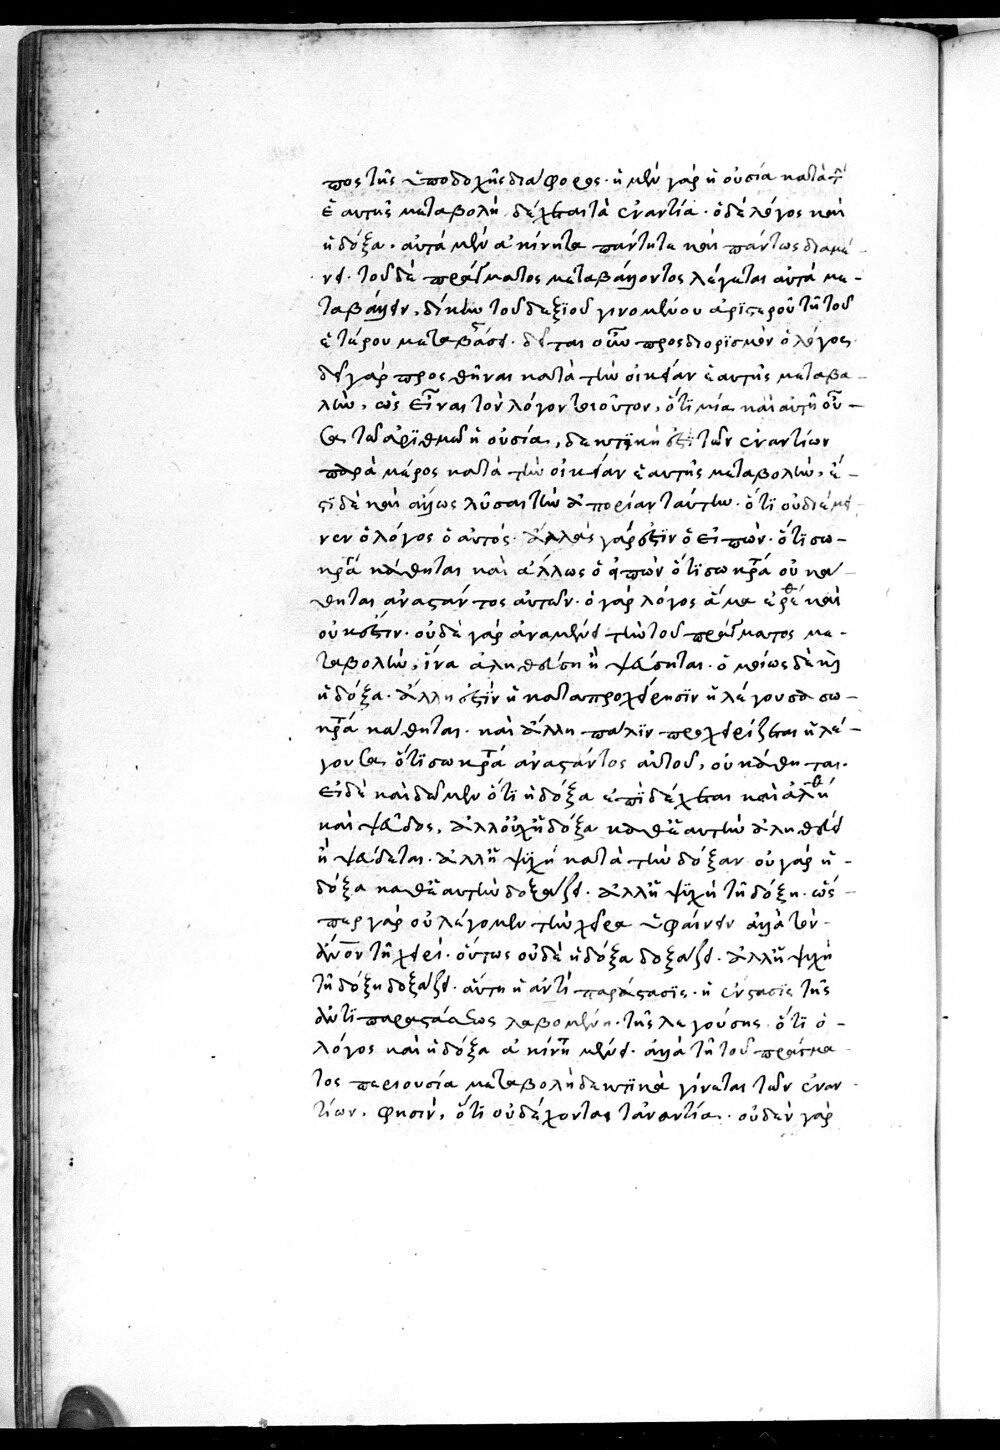 πος τῆς ὑποδοχῆς διάφορος· ἡ μὲν γὰρ ἡ οὐσία κατὰ τ
ἑαυτῆς μεταβολὴ δέχεται τὰ ἐναντία· ὁ δὲ λόγος καὶ
ἡ δόξα· αὐτὰ μὲν ἀκίνητα πάντη τε καὶ πάντως διαμέ-
νει· τοῦ δὲ πράγματος μεταβάλλοντος λέγεται αὐτὰ με-
ταβάλλειν, δίκην τοῦ δεξιοῦ γινομένου ἀριστεροῦ τῆ τοῦ
ἑτέρου μεταβάσει· δεῖται οὖν προσδιορισμὸν ὁ λόγος·
δεῖ γὰρ προσθῆναι κατὰ τὴν οἰκείαν ἑαυτῆς μεταβο-
λὴν, ὡς εἶναι τὸν λόγον τοιοῦτον, ὅτι μία καὶ αὐτὴ οὖ-
σα τῶ ἀριθμῶ ἡ οὐσία, δεκτικὴ ἐστὶ τῶν ἐναντίων
παρὰ μέρος κατὰ τὴν οἰκείαν ἑαυτῆς μεταβολὴν, ἔ-
στι δὲ καὶ ἄλλως λῦσαι τὴν ἀπορίαν ταύτην· ὅτι οὐ διέμει-
νεν ὁ λόγος ὁ αὐτός· ἄλλος γάρ ἐστιν ὁ εἰπὼν· ὅτι σω-
κρά κάθηται καὶ ἄλλως ὁ εἰπὼν ὅτι σωκρά οὐ κά-
θηται ἀναστάντος αὐτοῦ· ὁ γὰρ λόγος ἅμα ἐρρέθ καὶ
οὐκ ἔστιν· οὐδὲ γὰρ ἀναμένει τὴν τοῦ πράγματος με-
ταβολὴν, ἵνα ἀληθεύση ἢ ψεύσηται· ὁμοίως δὲ καὶ
ἡ δόξα· ἄλλη ἐστὶν ἡ κατὰ προχείρησιν ἡ λέγουσα σω-
κρά κάθηται· καὶ ἄλλη πάλιν προχειρίζεται ἡ λέ-
γουσα ὅτι σωκρά ἀναστάντος αὐτοῦ, οὐ κάθηται·
εἰ δὲ καὶ δῶμεν ὅτι ἡ δόξα ἐπιδέχεται καὶ ἀληθ
καὶ ψεῦδος, ἀλλ' οὐχ' ἡ δόξα καθ' ἑαυτὴν ἀληθεύει
ἢ ψεύδεται· ἀλλ' ἡ ψυχὴ κατὰ τὴν δόξαν οὐ γὰρ ἡ
δόξα καθ' ἑαυτὴν δοξάζει· ἀλλ' ἡ ψυχὴ τῆ δόξη· ὥσ-
περ γὰρ οὐ λέγομεν τὴν χεῖρα ὑφαίνειν ἀλλὰ τὸν
ἄνον τῆ χειρί· οὕτως οὐδὲ ἡ δόξα δοξάζει· ἀλλ' ἡ ψυχὴ
τῆ δόξη δοξάζει· αὕτη ἡ ἀντιπαράστασις· ἡ ἔνστασις τῆς
ἀντιπαραστάσεως λαβομένη· τῆς λεγούσης ὅτι ὁ
λόγος καὶ ἡ δόξα ἀκίνη μένει· ἀλλὰ τῆ τοῦ πράγμα-
τος περιουσία μεταβολῆ δεκτικὰ γίνεται τῶν ἐναν-
τίων, φησὶν, ὅτι οὐ δέχονται τἀναντία· οὐδὲν γὰρ